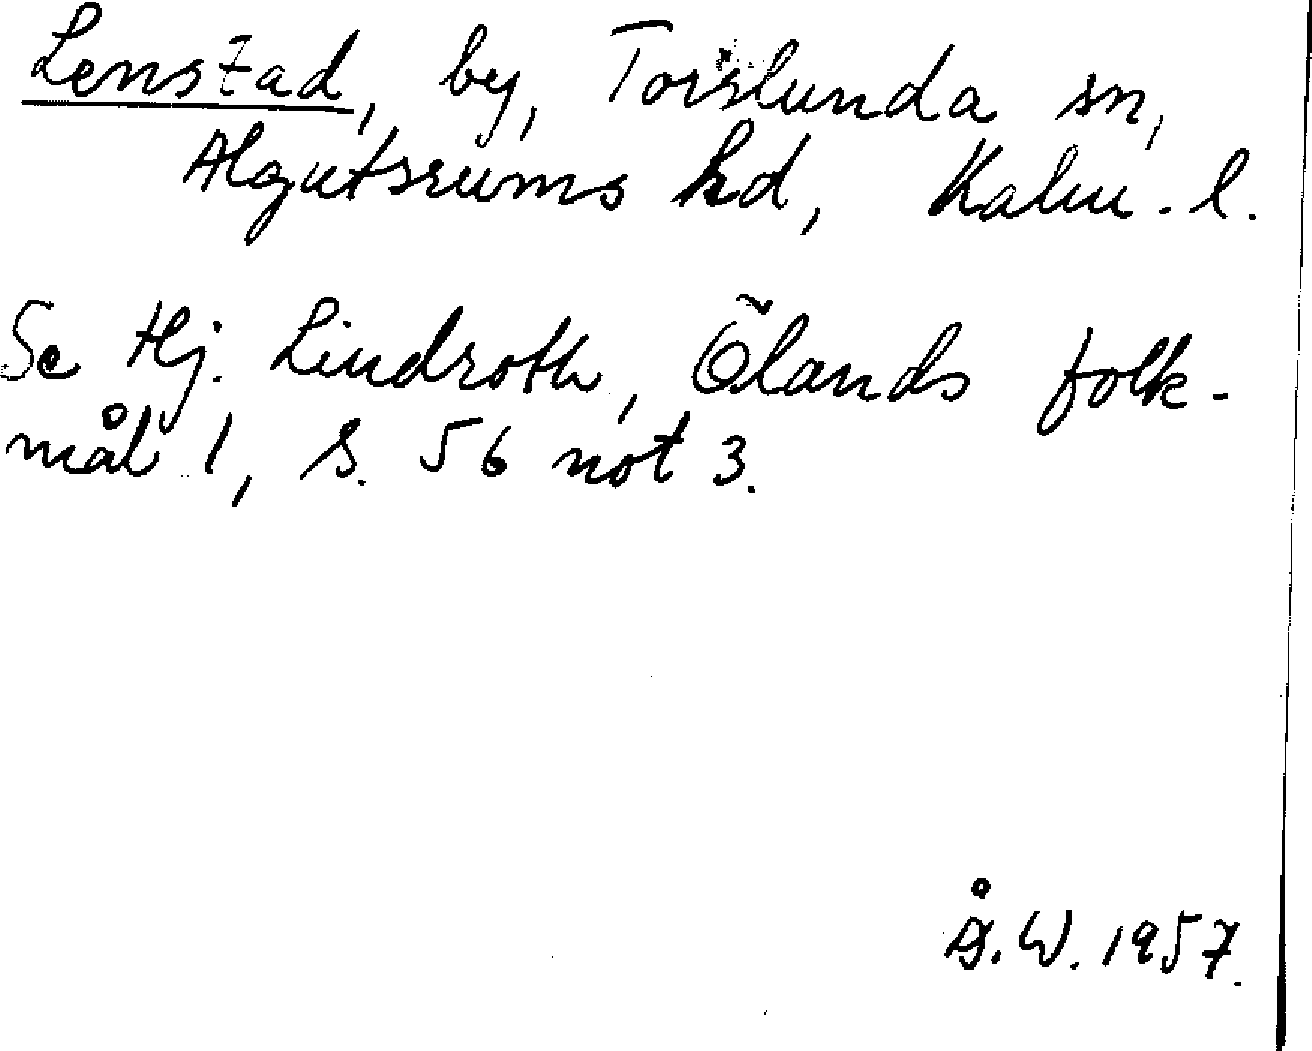 Lenstad, by, Torslunda sn,
Algutsrums hd, Kalm. l.
Se Hj. Lindroth, Ölands folk-
mål 1, s. 56 not 3.
Å. W. 1957.